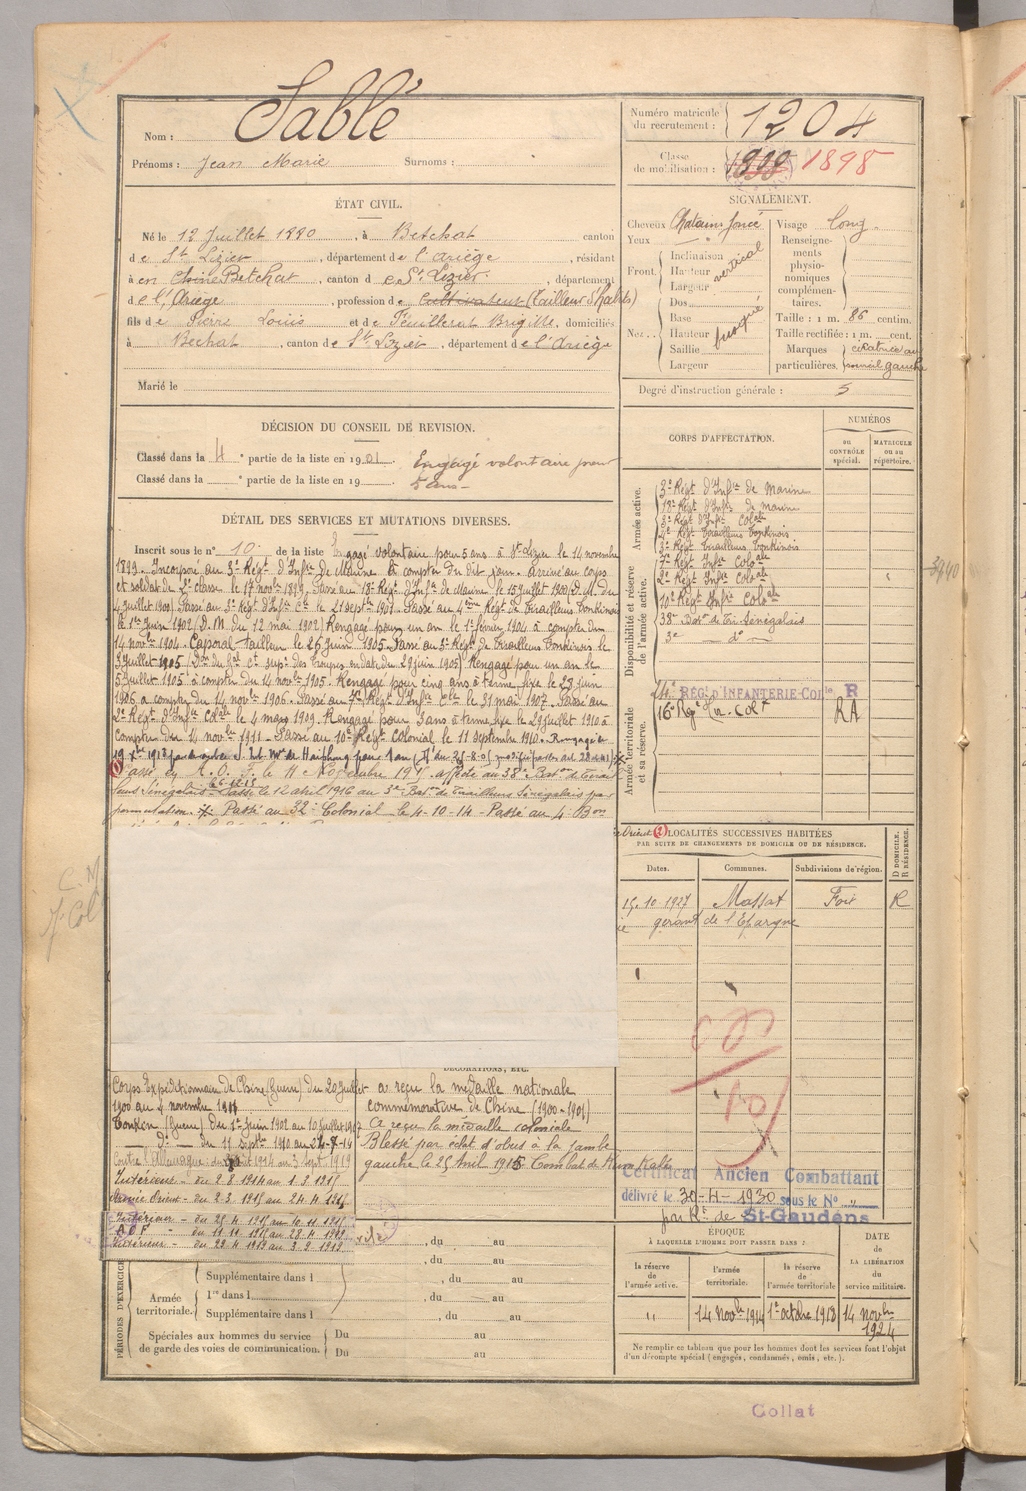 Nom : Sablé
Prénoms : Jean Marie Surnoms :
Numéro matricule du recrutement : 1204
Classe de mobilisation : 1898
ÉTAT CIVIL.
Né le 12 Juillet 1880, à Betchat canton
de St Lizier, département de l'Ariège, résidant
à en Chine Betchat, canton de St Lizier, département
de l'Ariège, profession de cultivateur (Tailleur d'habits)
fils de Pierre Louis et de Feuillerat Brigitte, domiciliés
à Betchat, canton de St Lizier, département de l'Ariège
Marié le
SIGNALEMENT.
Cheveux Chatains foncé
Yeux
Front. Inclinaison
Hauteur vertical
Largeur
Nez. Dos
Base
Hauteur busqué
Saillie
Largeur
Visage long
Renseignements physionomiques complémentaires.
Taille : 1 m. 86 centim.
Taille rectifiée : 1 m. cent.
Marques particulières. cicatrice au sourcil gauche
Degré d'instruction générale : 3
DÉCISION DU CONSEIL DE REVISION.
Classé dans la 4e partie de la liste en 1901. Engagé volontaire pour
Classé dans la e partie de la liste en 19 5 ans
DÉTAIL DES SERVICES ET MUTATIONS DIVERSES.
Inscrit sous le n° 10 de la liste Engagé volontaire pour 5 ans à St Lizier le 14 novembre
1899. Incorporé au 3e Régt d'Inf̃ie de Marine à compter du dit jour. arrivé au corps
et soldat de 2e classe le 17 novbre 1899. Passé au 18e Régt d'Infie de Marine le 15 Juillet 1900 (D.M. du
4 Juillet 1900) Passé au 3e Régt d'Infie Cle le 21 septe 1901. Passé au 4ème Régt de Tirailleurs Tonkinois
le 1er Juin 1902 (D.M. du 12 mai 1902) Rengagé pour un an le 1er février 1904 à compter du
14 novbre 1904. Caporal tailleur le 26 juin 1905. Passé au 3e Régt de Tirailleurs Tonkinois le
Juillet 1905 (Don du Gal Ct Supr des troupes en date du 29 juin 1905) Rengagé pour un an le
5 Juillet 1905 à compter du 14 novbre 1905. Rengagé pour cinq ans à terme fixe le 23 juin
1906 a compter du 14 novbre 1906. Passé au 7e Régt d'Infie Cole le 31 mai 1907. Passé au
2e Régt d'Infie Colale le 4 mars 1909. Rengagé pour 3 ans à terme fixe le 29 juillet 1910 à
compter du 14 novbre 1911. Passé au 10e Régt Colonial le 11 septembre 1910. Rengagé le
Passé en A. O. F. le 11 Novembre 191 affecté au 38e Baton de Tirail
leurs Sénégalais Passé le 12 avril 1916 au 3me Baton de Tirailleurs Sénégalais par
permutation. Passé au 32e Colonial le 4-10-14 Passé au 4e Bon
CORPS D'AFFECTATION.
NUMÉROS
au CONTRÔLE spécial.
MATRICULE ou au répertoire.
Armée active.
3e Régt d'Infie de Marine
18e Régt d'Infie de marine
3e Régt d'Infie Colale
4e Régt Tirailleurs Tonkinois
3e Régt Tirailleurs Tonkinois
7e Régt Infie Colale
2e Régt Infie Colale
10e Régt Infie Colale
Disponibilité et réserve de l'armée active.
38e Baton de Tir. Sénégalais
3e do
4e RÉGt D'INFANTERIE COLle R
16e Regt In. Colt RA
Armée territoriale et sa réserve.
3940
LOCALITÉS SUCCESSIVES HABITÉES
PAR SUITE DE CHANGEMENTS DE DOMICILE OU DE RÉSIDENCE.
Dates. Communes. Subdivisions de région. D DOMICILE. R RÉSIDENCE.
15.10.1927 Massat Foix R
gérant de l'Epargne
C. M
Corps Expéditionnaire de Chine (Guerre) du 20 Juillet
1900 au 4 novembre 1901
Tonkin (Guerre) du 1er Juin 1902 au 10 Juillet 1907
do du 11 septbre 1910 au 27-7-14
Contre l'Allemagne : du 2 août 1914 au 3 Sept. 1919
Intérieur - du 2 8 1914 au 1. 3. 1915
Armée Orient - du 2-3. 1915 au 24 4 1915
Intérieur - du 25 4 1915 au 10 11 1915
A O F - du 11 11 1915 au 28 4 1919
Intérieur - du 29 4 1919 au 3 9 1919
DÉCORATIONS, ETC.
a reçu la médaille nationale
commémorative de Chine (1900-1901)
a reçu la médaille coloniale
Blessé par éclat d'obus à la jambe
gauche le 25 Avril 1915 Combat de Kum Kalé
Certificat Ancien Combattant
délivré le 30-4-1930 sous le No
par Rt de St-Gaudens
, du au
, du au
PÉRIODES D'EXERCICE
Armée territoriale.
Supplémentaire dans l , du au
1re dans l , du au
Supplémentaire dans l , du au
Spéciales aux hommes du service de garde des voies de communication.
Du au
Du au
ÉPOQUE
À LAQUELLE L'HOMME DOIT PASSER DANS :
la réserve de l'armée active.
l'armée territoriale.
la réserve de l'armée territoriale
DATE de LA LIBÉRATION du service militaire.
" 14 Novbre 1914 1er octobre 1918 14 novbre 1924
Ne remplir ce tableau que pour les hommes dont les services font l'objet
d'un décompte spécial (engagés, condamnés, omis, etc.).
Collat